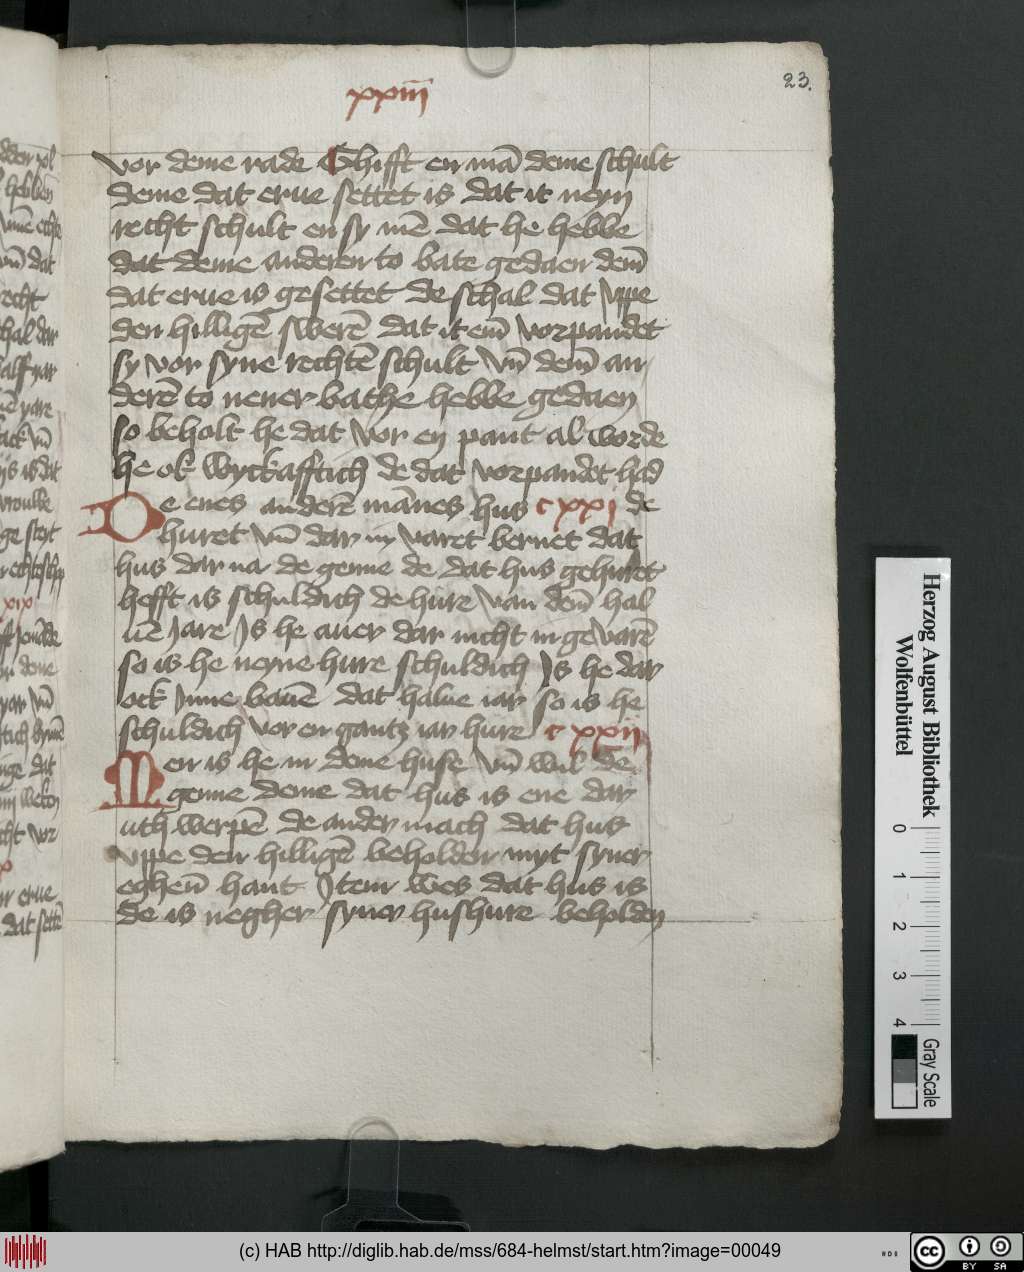 xxiii
23.
vor deme rade Ghifft en mā deme schult
deme dat erue settet is dat it neyn
recht schult en sy mē dat he hebbe
dat deme anderen to bate gedaen dem̄
dat erue is gesettet de schal dat vppe
den hilligē swerē dat it em̄ vorpandet
sy vor syne rechtē schult vn̄ dem̄ an
derē to nener bathe hebbe gedaen
so beholt he dat vor en pant al worde
he ok wyckafftich de dat vorpandet had
De enes anderē mānes hus cxxi de
huret vn̄ dar in varet bernet dat
hus dar na de genne de dat hus gehuret
hefft is schuldich de hure van dem̄ hal
uē Jare Js he auer dar nicht in geVarē
so is he neyne hure schuldich Js he dar
ock Jnne bauē dat halue iar so is he
schuldich vor en gantz iar hure cxxii
Men is he in deme huse vn̄ wul de
genne deme dat hus is ene dar
uth werpē de ander mach dat hus
vppe den hilligē beholden myt syner
eghen̄ hant Jtem wes dat hus is
de is negher syner hushure beholden
Herzog August Bibliothek
Wolfenbüttel
0 1 2 3 4
Gray Scale
(c) HAB http://diglib.hab.de/mss/684-helmst/start.htm?image=00049
cc BY SA